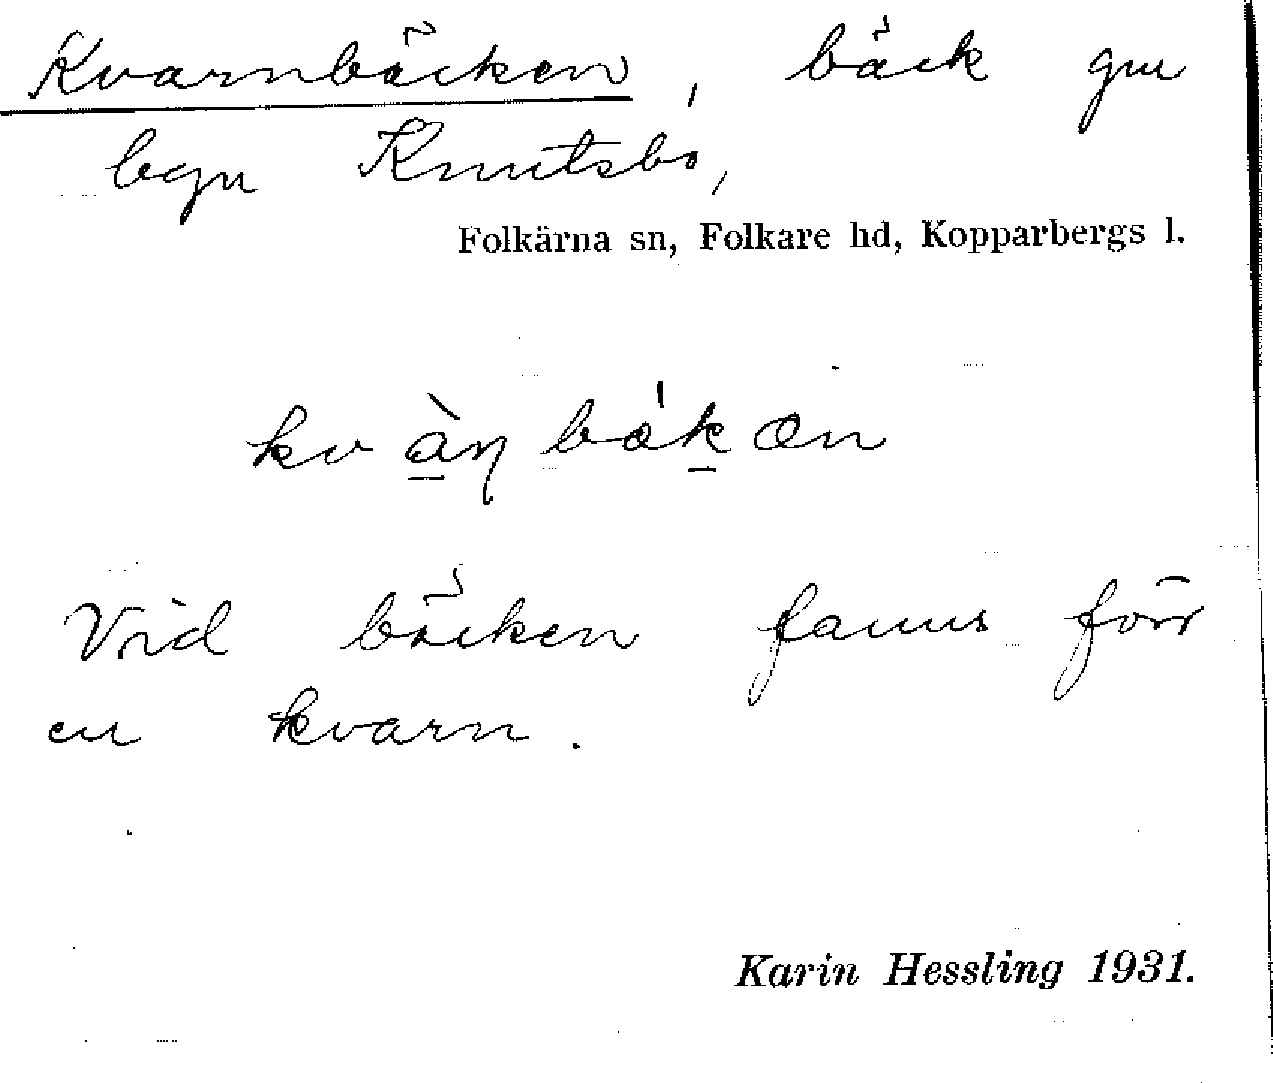 Kvarnbäcken, bäck gm
byn Knutsbo,
Folkärna sn, Folkare hd, Kopparbergs l.
Vid bäcken fanns förr
en kvarn.
Karin Hessling 1931.